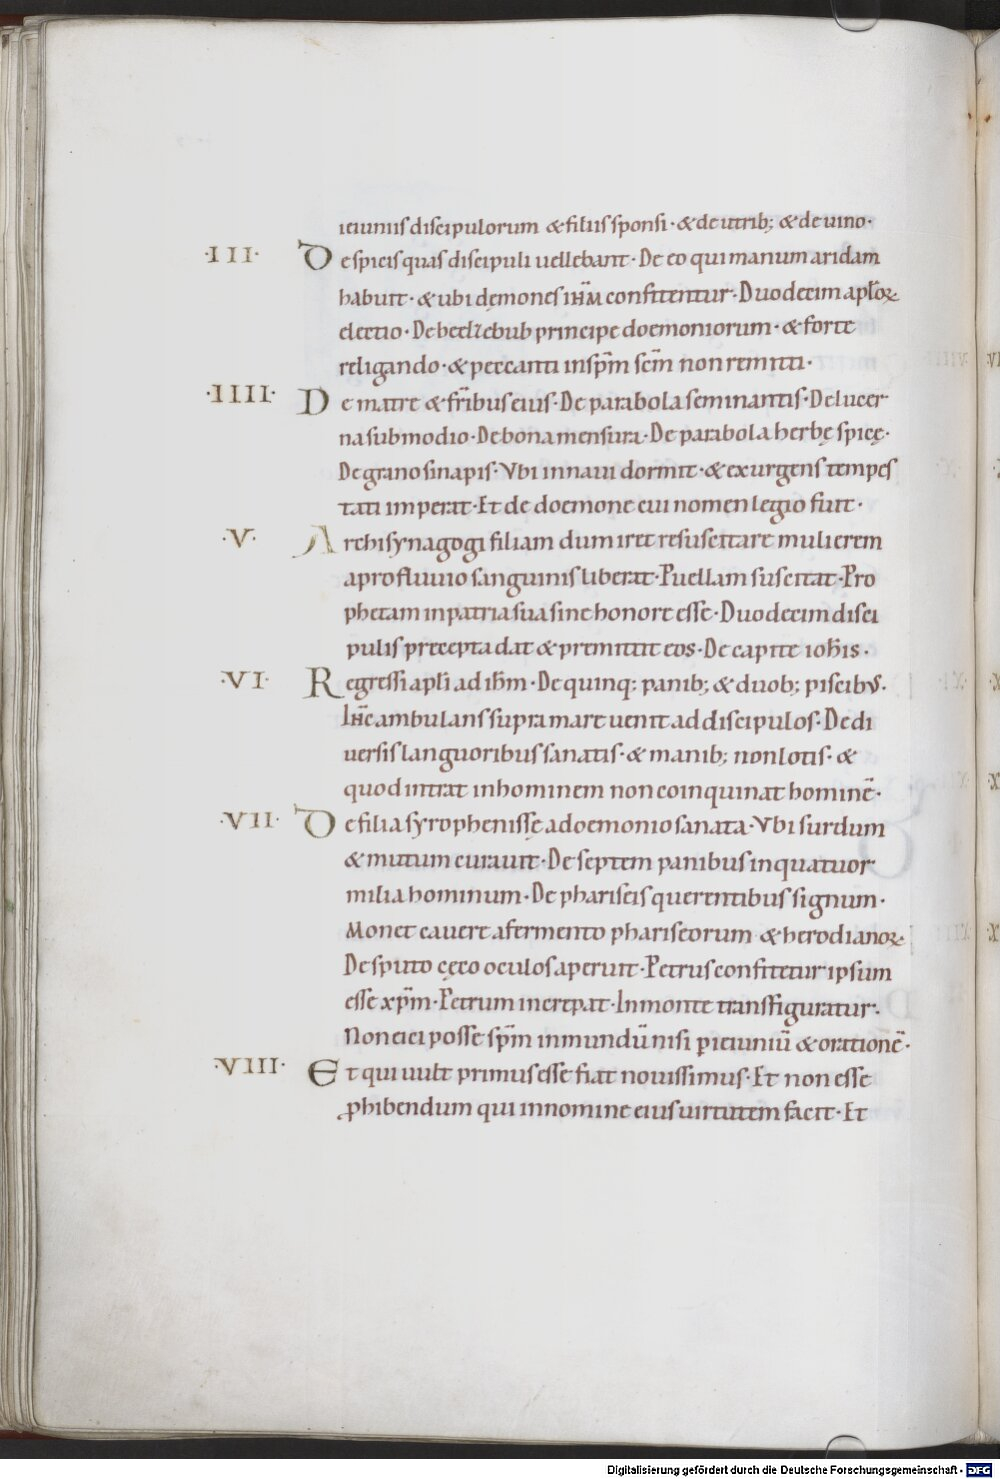 ieiuniis discipulorum & filiis sponsi · & de utrib; & de uino ·
·III· De spicis quas discipuli uellebant · De eo qui manum aridam
habuit · & ubi dęmones iH̄M confitentur · Duodecim apl̄oꝝ
electio · De beelzebub principe doemoniorum · & forte
religando · & peccanti in sp̄m sc̄m non remitti ·
·IIII· De matre & fr̄ibus eius · De parabola seminantis · De lucer
na sub modio · De bona mensura · De parabola herbę spicę ·
De grano sinapis · Vbi in naui dormit · & exurgens tempes
tati imperat · Et de doemone cui nomen legio fuit ·
·V· Archisynagogi filiam dum iret resuscitare mulierem
a profluuio sanguinis liberat · Puellam suscitat · Pro
phetam in patria sua sine honore esse · Duodecim disci
pulis precepta dat & premittit eos · De capite ioh̄is ·
·VI· Regressi apl̄i ad ih̄m · De quinq; panib; & duob; piscibus ·
IH̄C ambulans supra mare uenit ad discipulos · De di
uersis languoribus sanatis · & manib; non lotis · &
quod intrat in hominem non coinquinat hominē ·
·VII· De filia syrophenissę a doemonio sanata · Vbi surdum
& mutum curauit · De septem panibus in quatuor
milia hominum · De phariseis querentibus signum ·
Monet cauere a fermento phariseorum & herodianoꝝ
De sputo cęco oculos aperuit · Petrus confitetur ipsum
esse xp̄m · Petrum increpat · In monte transfiguratur ·
Non eici posse sp̄m inmundū nisi ꝑ ieiuniū & orationē ·
·VIII· Et qui uult primus esse fiat nouissimus · Et non esse
ꝓhibendum qui in nomine eius uirtutem facit · Et
Digitalisierung gefördert durch die Deutsche Forschungsgemeinschaft - DFG